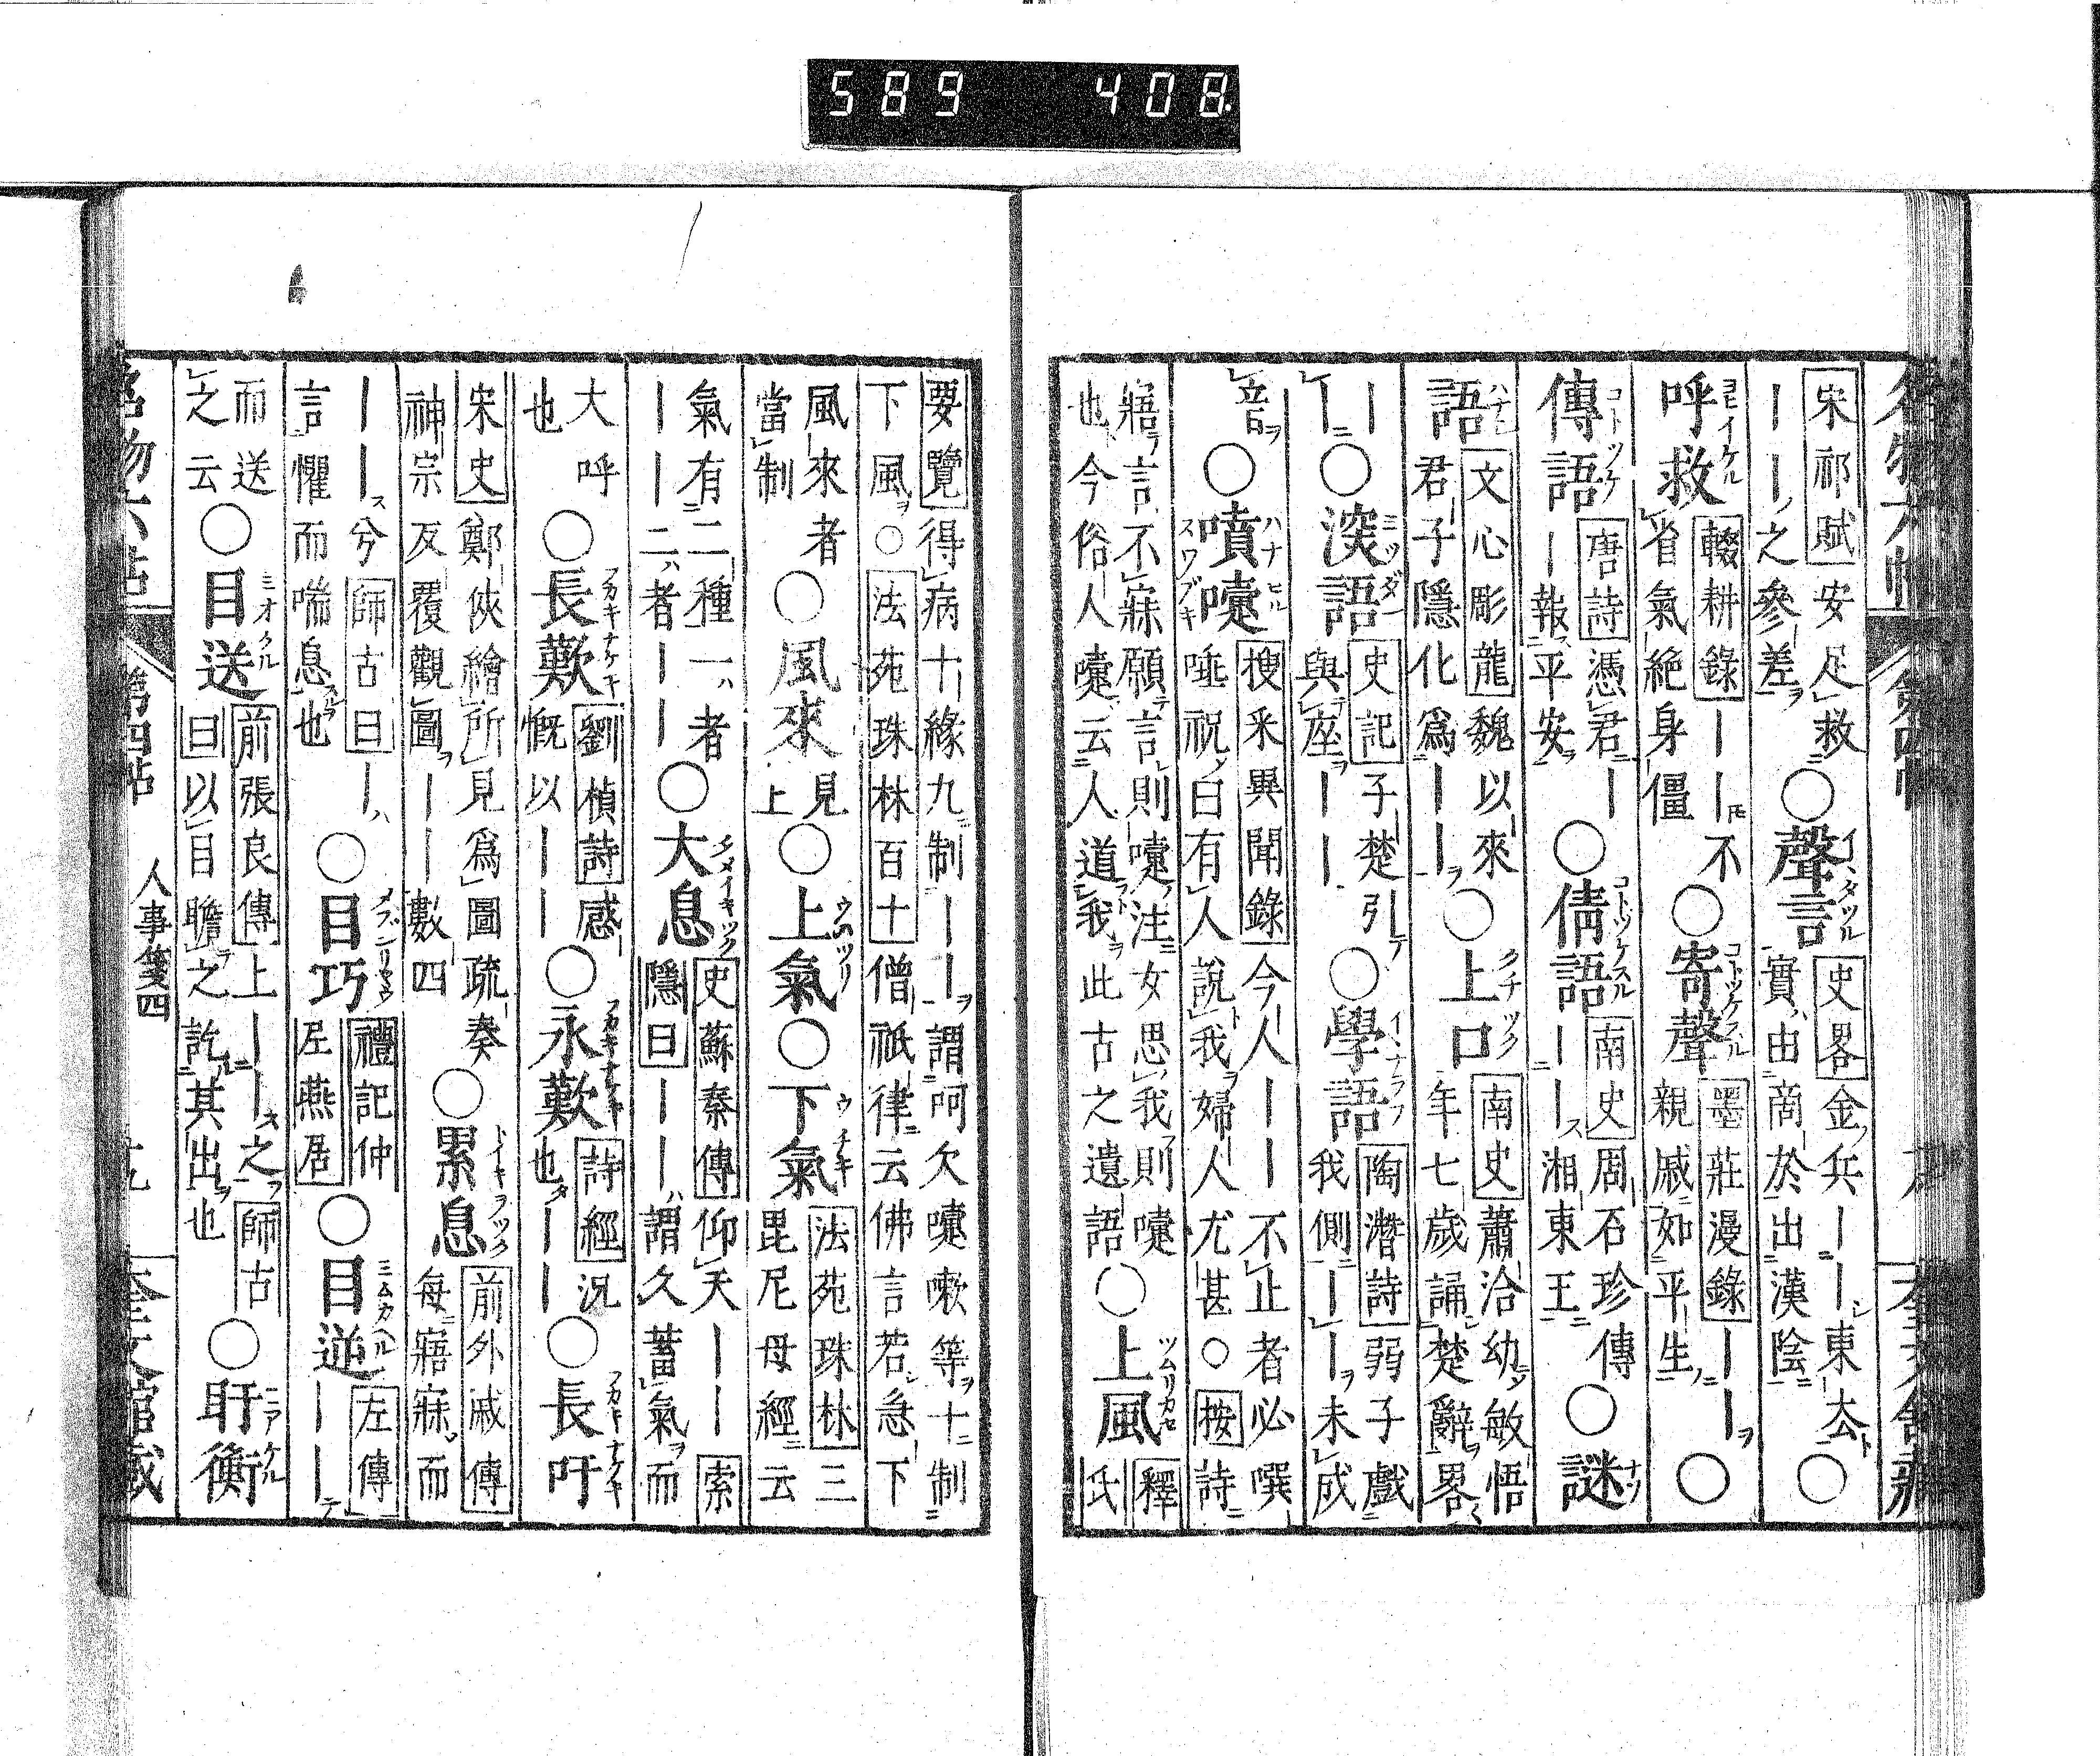 名物六帖　第四帖　奎文館藏
宋祁賦安足救｜｜之參差○聲言史畧金兵｜｜東去實由商於出漢陰○
呼救輟耕錄｜｜不省氣絕身僵○寄聲墨莊漫錄｜｜親戚如平生○
傳語唐詩憑君｜｜報平安○倩語南史周石珍傳｜｜湘東王○謎
語文心彫龍魏以來君子隱化爲｜｜○上口南史蕭洽幼敏悟年七歲誦楚辭畧
｜｜○深語史記子楚引與座｜｜○學語陶潛詩弱子戲我側｜｜未成
音○噴嚏搜釆異聞錄今人｜｜不止者必噀唾祝曰有人說我婦人尤甚○按詩
寤言不寐願言則嚏注女思我則嚏也今俗人嚏云人道我此古之遺語○上風釋氏
要覽得病十緣九制｜｜謂呵欠嚏嗽等十制下風○法苑珠林百十僧祇律云佛言若急下
風來者當制○風來見上○上氣○下氣法苑珠林三毘尼母經云
氣有二種一者｜｜二者｜｜○大息史蘇秦傳仰天｜｜索隱曰｜｜謂久蓄氣而
大呼也○長歎劉楨詩感慨以｜｜○永歎詩經況也｜｜○長吁
宋史鄭俠繪所見爲圖疏奏神宗反覆觀圖｜｜數四○累息前外戚傳每寤寐而
｜｜兮師古曰｜言懼而喘息也○目巧禮記仲尼燕居○目逆左傳｜｜
而送之云○目送前張良傳上｜｜之師古曰以目瞻之訖其出也○盱衡
名物六帖　第四帖　人事箋四　十九　奎文館藏
589　408